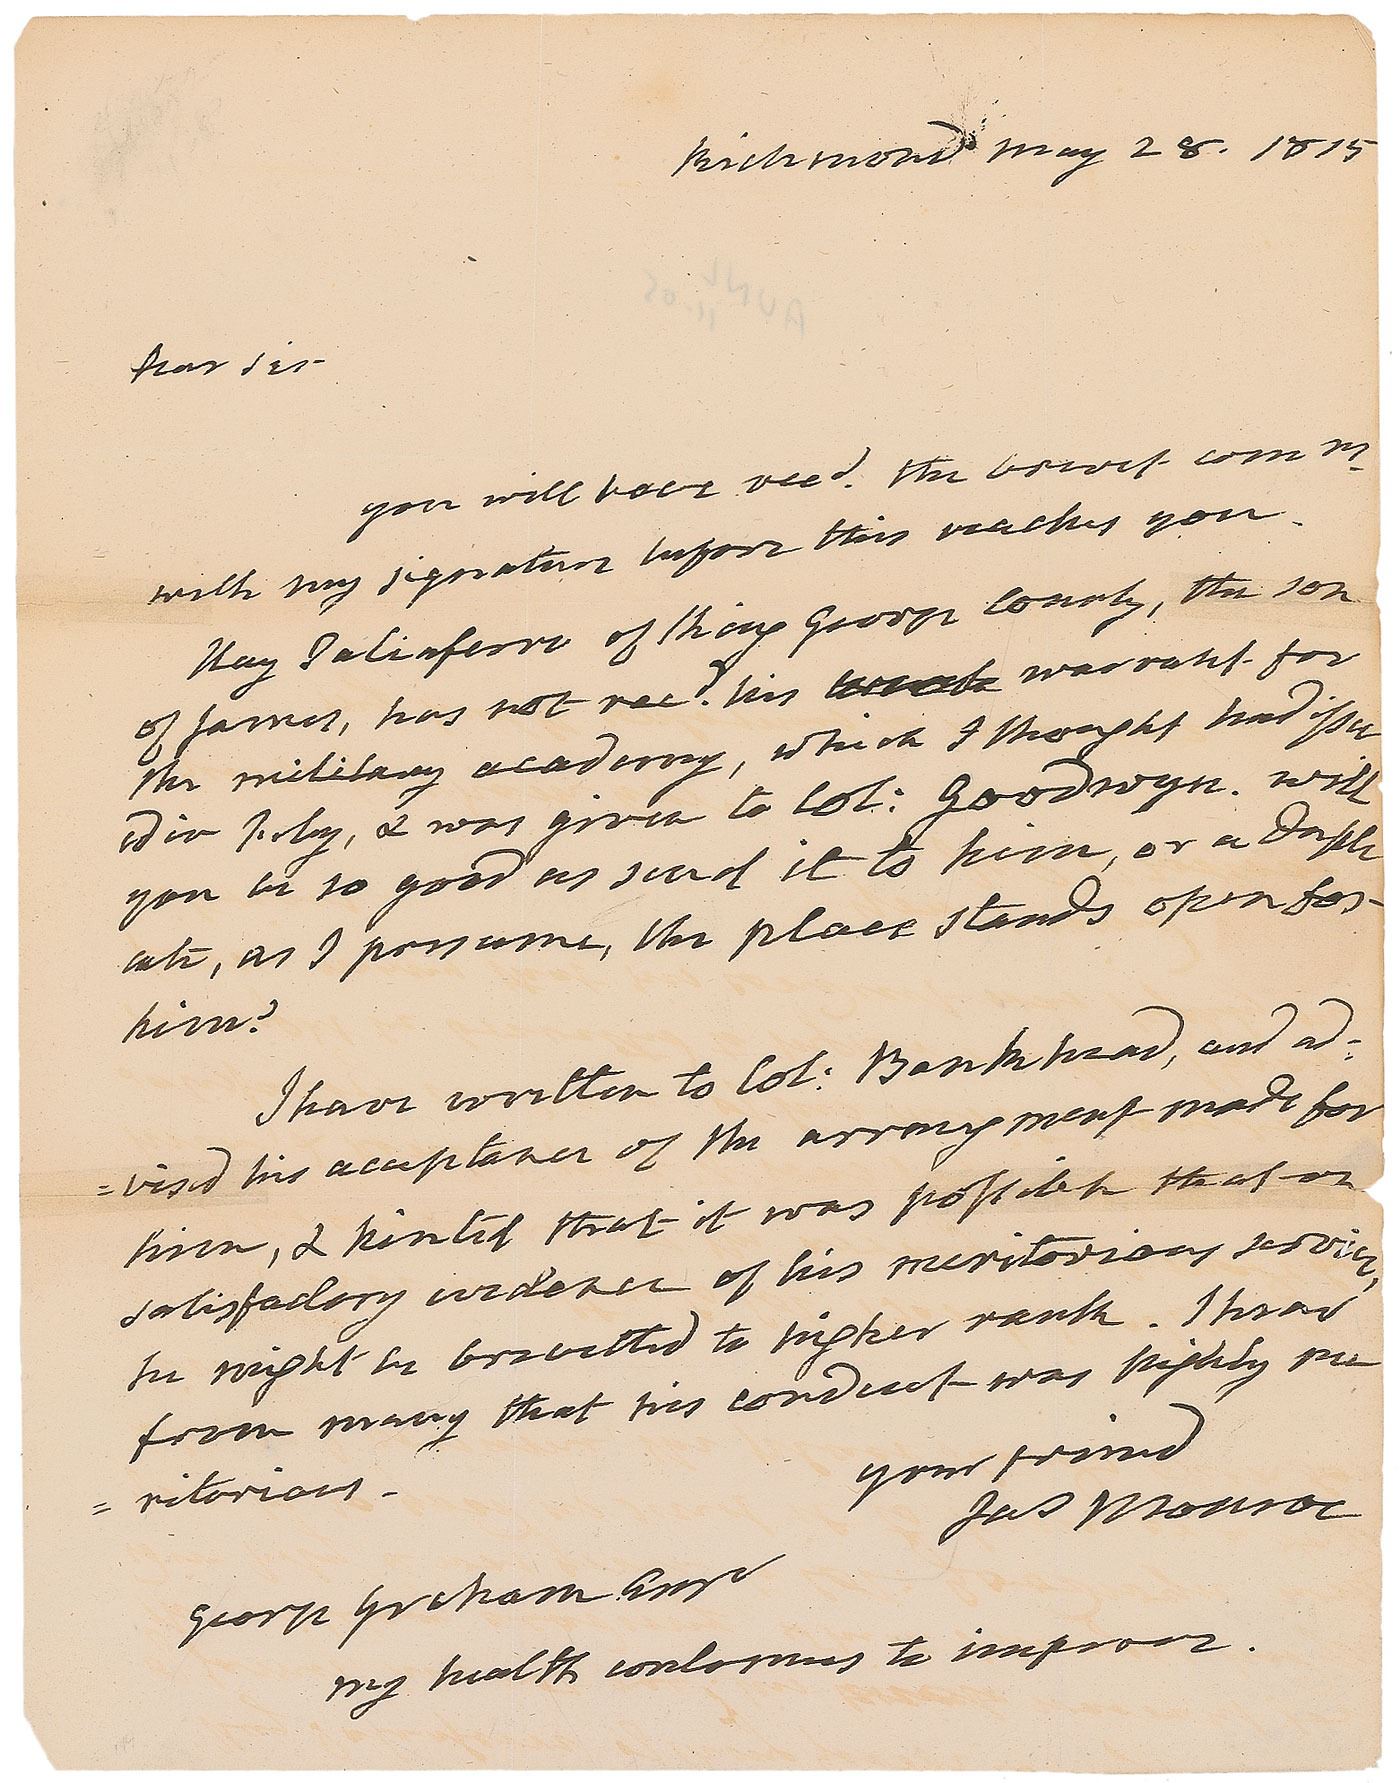 Richmond May 28. 1815
Dear Sir
you will have recd. the brevet comms
with my signature before this reaches you.
Hay Taliaferro of King George County, the son
of James, has not recd. his warrant for
the military academy, which I thought had issu
ed in July, & was given to Col: Goodwyn. will
you be so good as send it to him, or a dupli
cate, as I pressume, the place stands open for
him?
I have written to Col: Bankhead, and ad=
=vised his acceptance of the arrangment made for
him, & hinted that it was possible that on
satisfactory evidence of his meritorious service,
he might be brevetted to higher rank. I hear
from many that his conduct was highly me
=ritorious.-
your friend
Jas Monroe
George Graham Esqr
my health continues to improve.